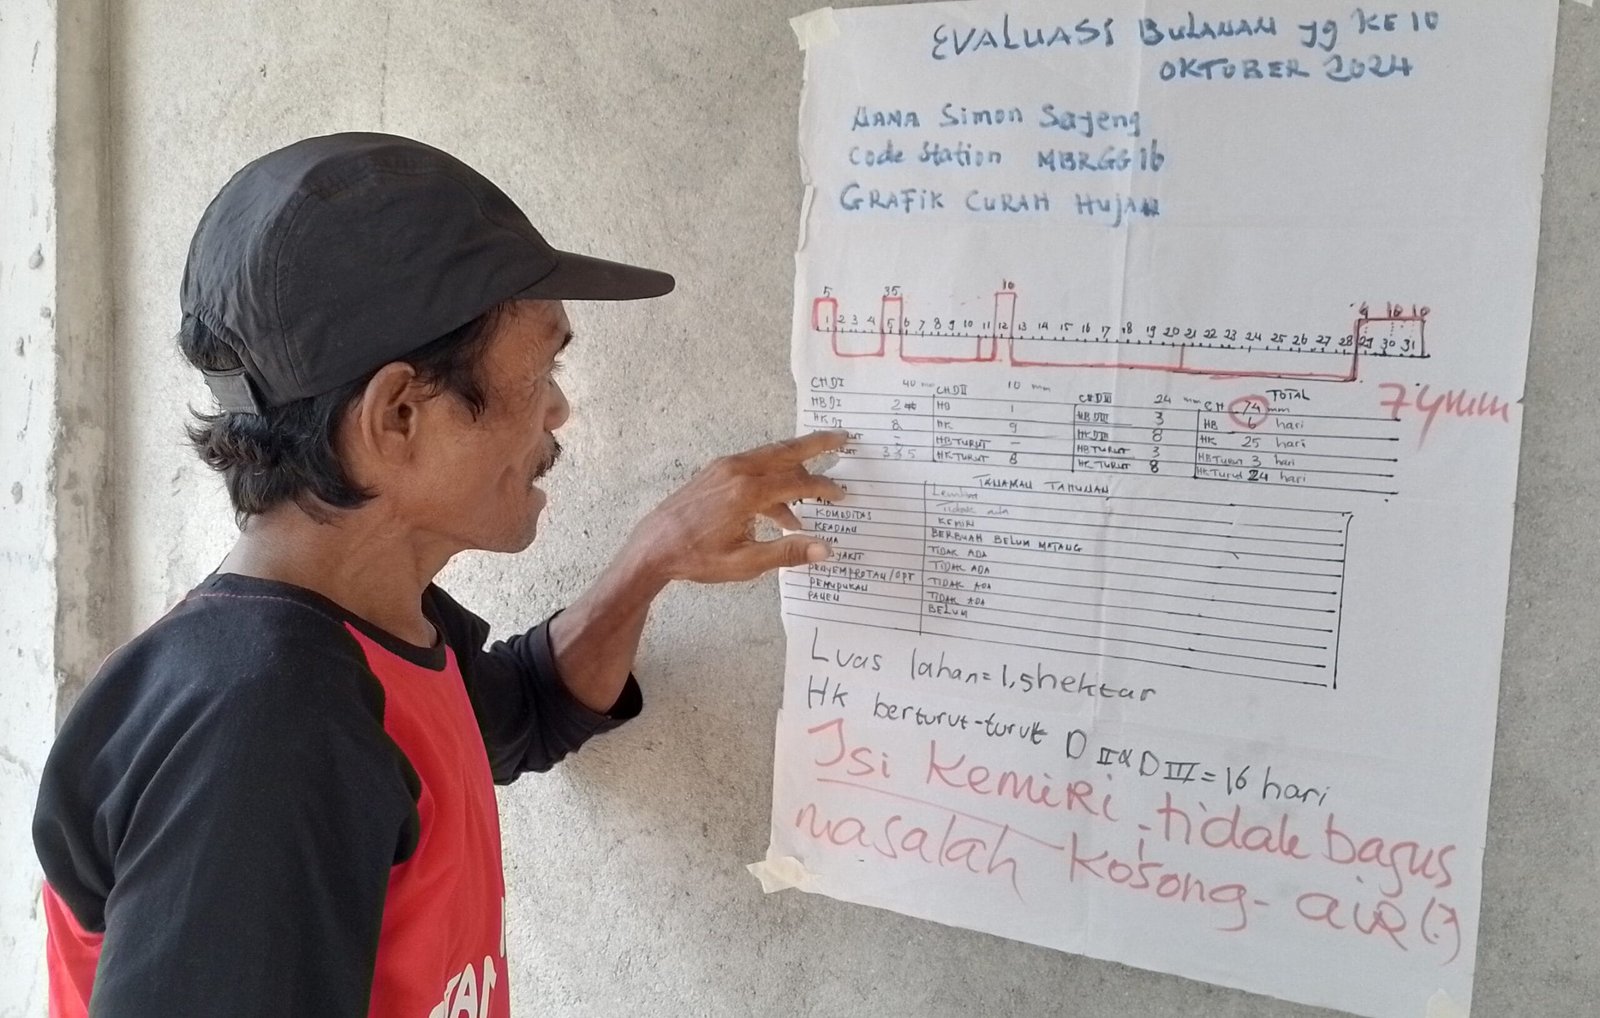 EVALUASI BULANAN yg KE 10
OKTOBER 2024
NAMA Simon Sayeng
Code Station MBRGG16
GRAFIK CURAH HUJAN
5 35 10 4 10 10
1 2 3 4 5 6 7 8 9 10 11 12 13 14 15 16 17 18 19 20 21 22 23 24 25 26 27 28 29 30 31
74mm
CHDI 40 mm CHDII 10 mm CHDIII 24 mm TOTAL
CH 74 mm
HBDI 2 HB 1 HBDIII 3 HB 6 hari
HKDI 8 HK 9 HKDIII 8 HK 25 hari
- HBTURUT - HBTURUT 3 HBTurut 3 hari
335 HKTURUT 8 HKTURUT 8 HKTurut 24 hari
TANAMAN TAHUNAN
Tidak ada
KOMODITAS KEMIRI
KEADAAN BERBUAH BELUM MATANG
TIDAK ADA
TIDAK ADA
PENYEMPROTAN/OPT TIDAK ADA
PEMUPUKAN TIDAK ADA
PANEN BELUM
Luas lahan = 1,5 hektar
HK berturut-turut D II & D III = 16 hari
Isi KEMIRI, tidak bagus
masalah Kosong - aiR (?)